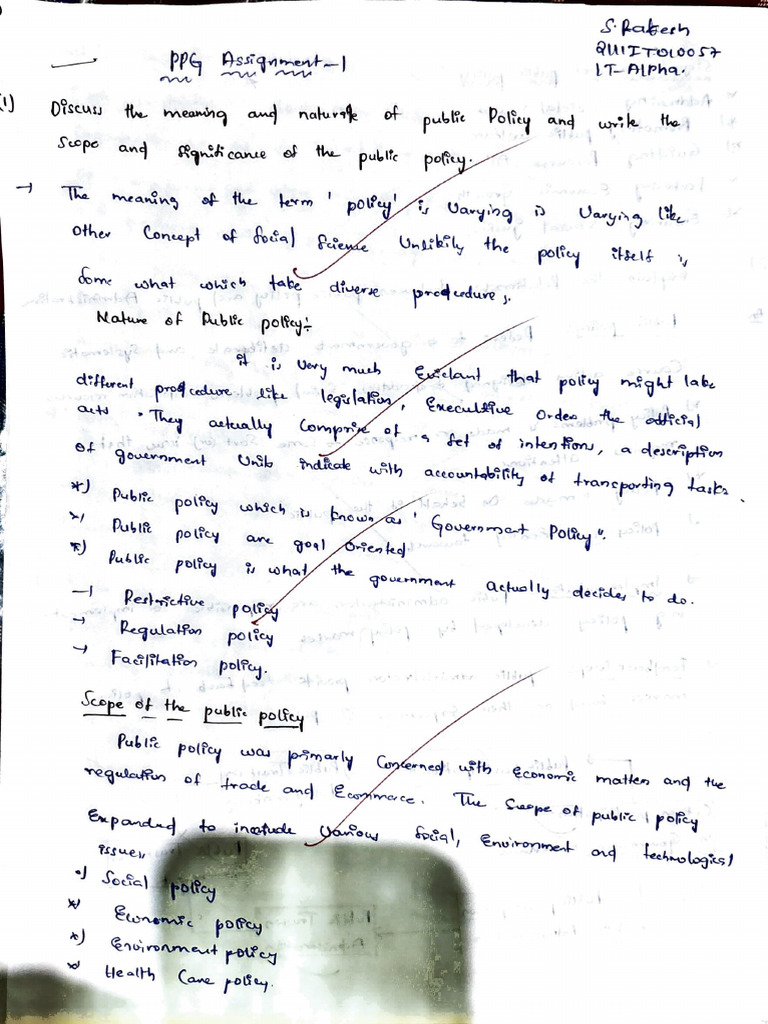 S. Rakesh
PPG Assignment-1
IT-Alpha.
1) Discuss the meaning and nature of public Policy and write the
Scope and significance of the public policy.
→ The meaning of the term 'policy' is varying is varying like
other Concept of Social Science Unlikely the policy itself is
Some what which take diverse procedures.
Nature of Public policy:-
it is very much Evidant that policy might take
different procedure like legislation, Executive Order the official
acts. They actually comprise of a set of intentions, a description
of government Units indicate with accountability of transporting tasks.
*) Public policy which is known as "Government Policy".
*) Public policy are goal oriented
*) Public policy is what the government actually decides to do.
→ Restrictive policy
→ Regulation policy
→ Facilitation policy.
Scope of the public policy
Public policy was primarly Concerned with Economic matters and the
regulation of trade and Ecommerce. The Scope of public policy
Expanded to include various Social, Environment and technological
issues
•) Social policy
*) Economic policy
*) Environment policy
*) Health Care policy.